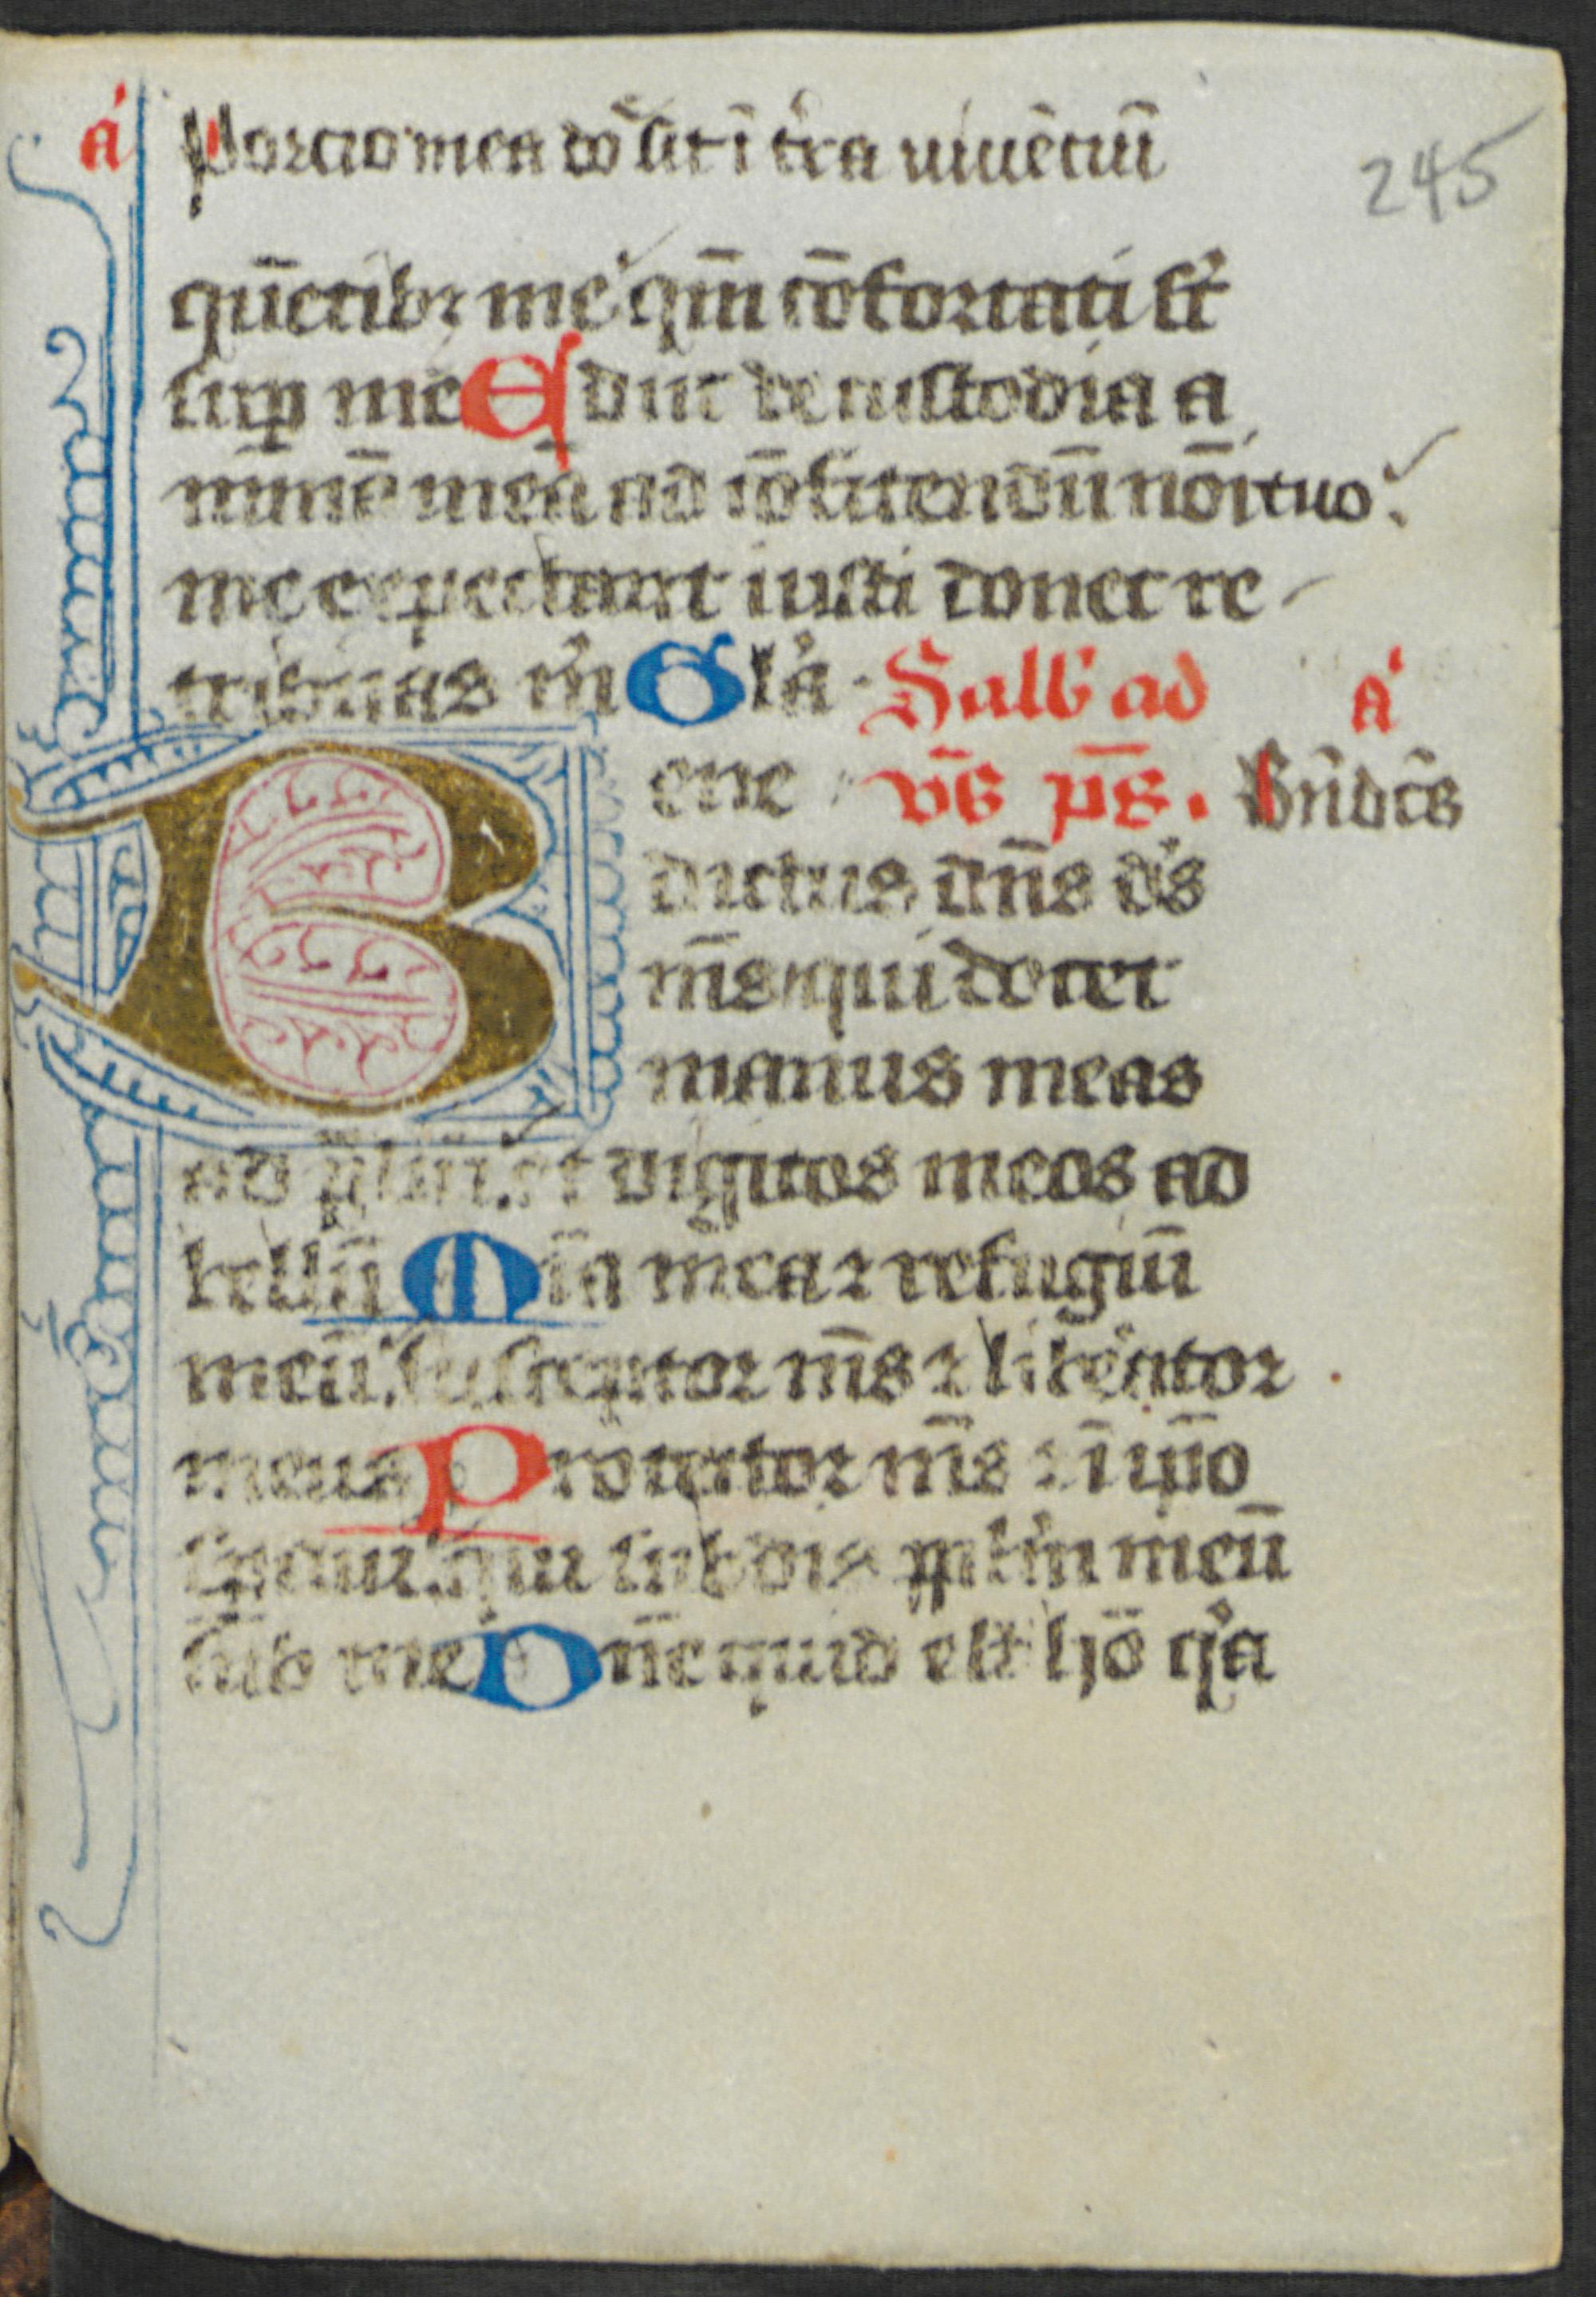 a᷎ Porcio mea dn̄e sit ī t̄ra uiuēciū
245
qūetibꝫ me qm̄ cōfortati st̄
suꝑ me Educ de custodia a
nimā meā ad cōfitendū nōī tuo
me expectant iusti donec re-
tribuas m̄ Glā. Sabb̓ ad a᷎
ene vr̄s ps̄. Bn̄dc̄s
dictus dn̄s ds̄
m̄s qui docet
manus meas
ad p̄liū et digitos meos ad
bellū M̄ia mea ⁊ refugiū
meū susceptor m̄s ⁊ liberator
meus Protector m̄s ⁊ ī ip̄o
speraui qui subdis ppl̄m meū
sub me Dn̄e quid est hō qa